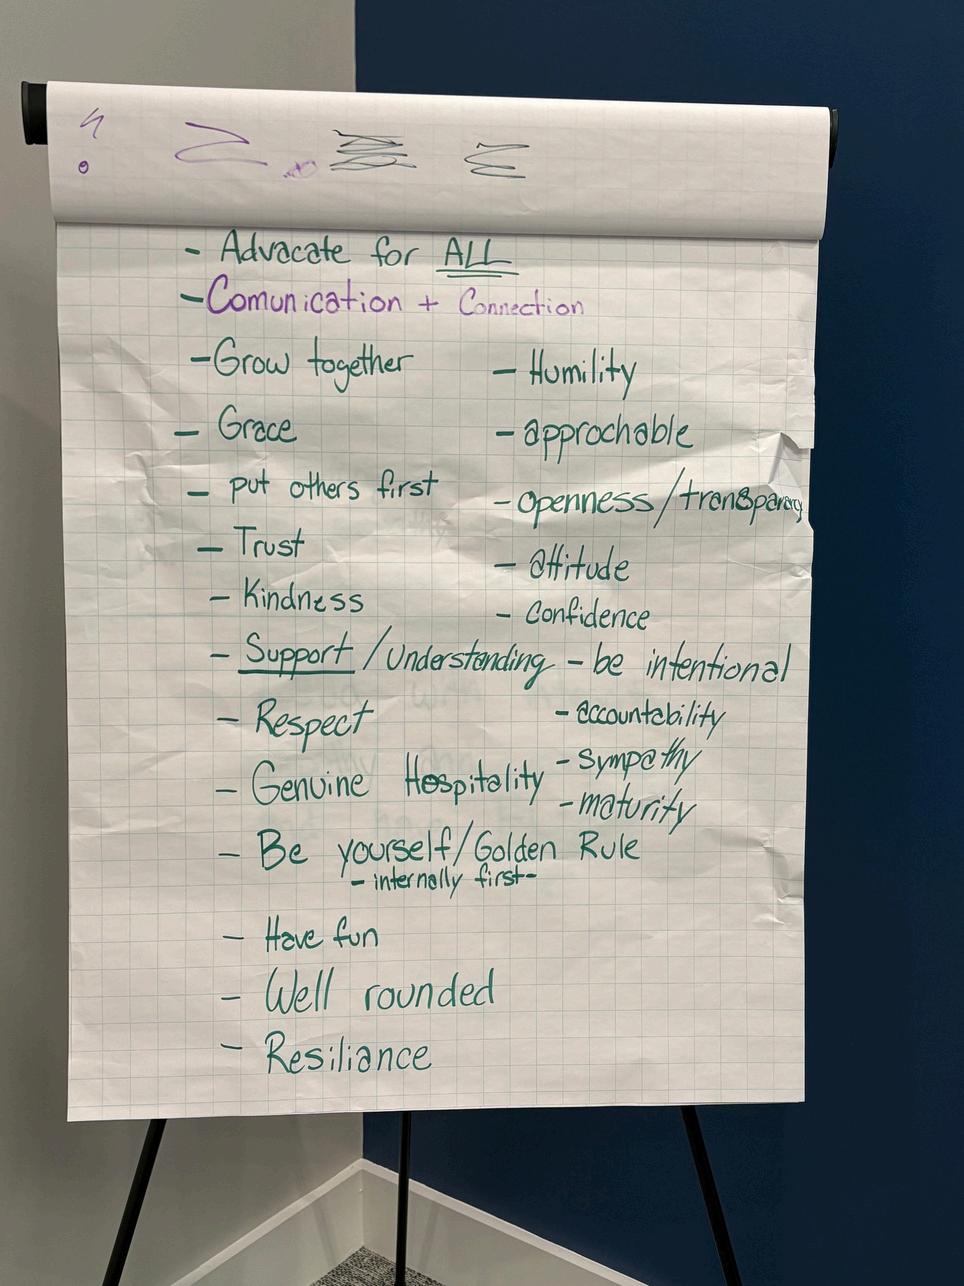 - Advacate for ALL
- Comunication + Connection
- Grow together
- Grace
- put others first
- Trust
- Kindness
- Support / Understanding
- Respect
- Genuine Hospitality
- Be yourself/Golden Rule
- internally first -
- Have fun
- Well rounded
- Resiliance
- Humility
- approchable
- openness / transparency
- attitude
- Confidence
- be intentional
- accountability
- sympathy
- maturity